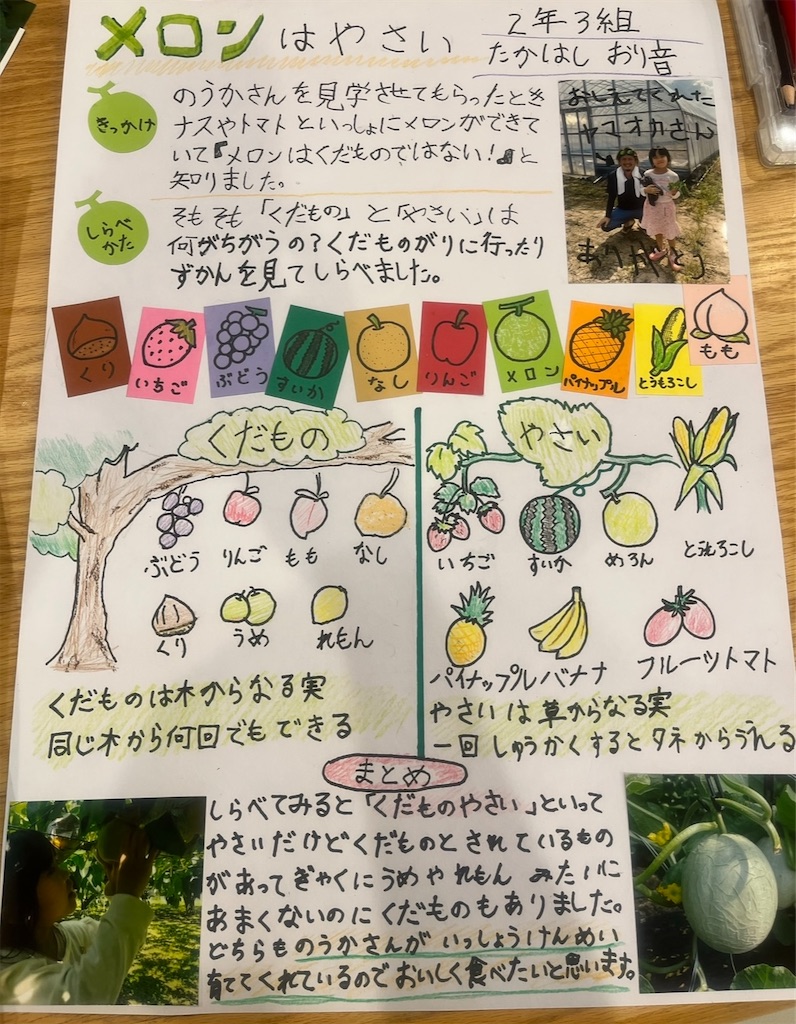 メロンはやさい
2年3組
たかはし おり音
きっかけ
のうかさんを見学させてもらったとき
ナスやトマトといっしょにメロンができて
いて『メロンはくだものではない!』と
知りました。
おしえてくれた
ヤマオカさん
ありがとう
しらべ
かた
そもそも「くだもの」と「やさい」は
何がちがうの?くだものがりに行ったり
ずかんを見てしらべました。
くり
いちご
ぶどう
すいか
なし
りんご
メロン
パイナップル
とうもろこし
もも
くだもの
ぶどう
りんご
もも
なし
くり
うめ
れもん
くだものは木からなる実
同じ木から何回でもできる
やさい
いちご
すいか
めろん
とうもろこし
パイナップル
バナナ
フルーツトマト
やさいは草からなる実
一回しゅうかくするとタネからうえる
まとめ
しらべてみると「くだものやさい」といって
やさいだけどくだものとされているもの
があってぎゃくにうめやれもんみたいに
あまくないのにくだものもありました。
どちらものうかさんがいっしょうけんめい
育ててくれているのでおいしく食べたいと思います。